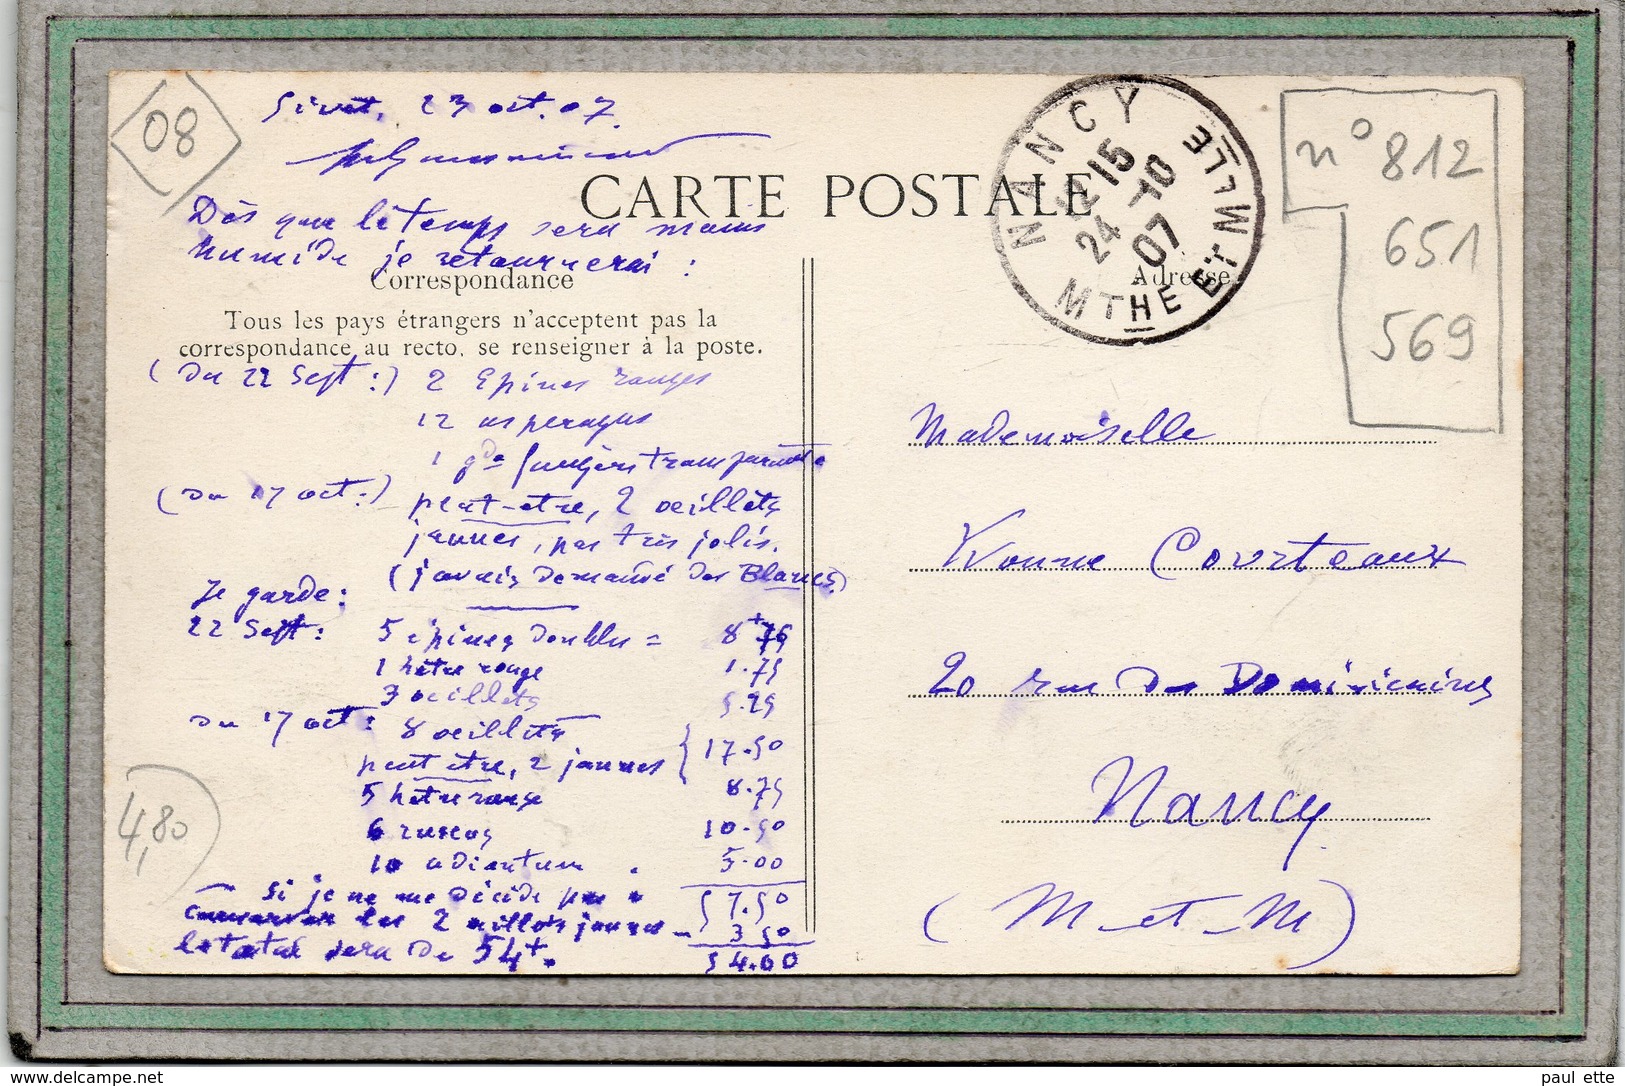 08
Givet, 23 oct. 07.
Dès que le temps sera moins
humide je retournerai :
CARTE POSTALE
Correspondance
Tous les pays étrangers n'acceptent pas la
correspondance au recto, se renseigner à la poste.
(du 22 Sept :) 2 Epines rouges
12 asperagus
1 gde fougère transparente
(du 17 oct :) peut-être, 2 oeillets
jaunes, pas très jolis.
(j'avais demandé des Blancs)
Je garde :
22 Sept : 5 épines doubles = 8.75
1 hêtre rouge 1.75
3 oeillets 5.25
du 17 oct : 8 oeillets
peut être, 2 jaunes } 17.50
5 hêtre rouge 8.75
6 ruscus 10.50
10 adiantum . 5.00
Si je ne me décide pas 57.50
conserver les 2 oeillets jaunes - 3 50
le total sera de 54+. 54.00
4,80
NANCY
12 15
24 -10
07
MTHE ET MLLE
Adresse
n° 812
651
569
Mademoiselle
Yvonne Courteaux
20 rue des Dominicains
Nancy
(M-et-M)
paul ette
www.delcampe.net